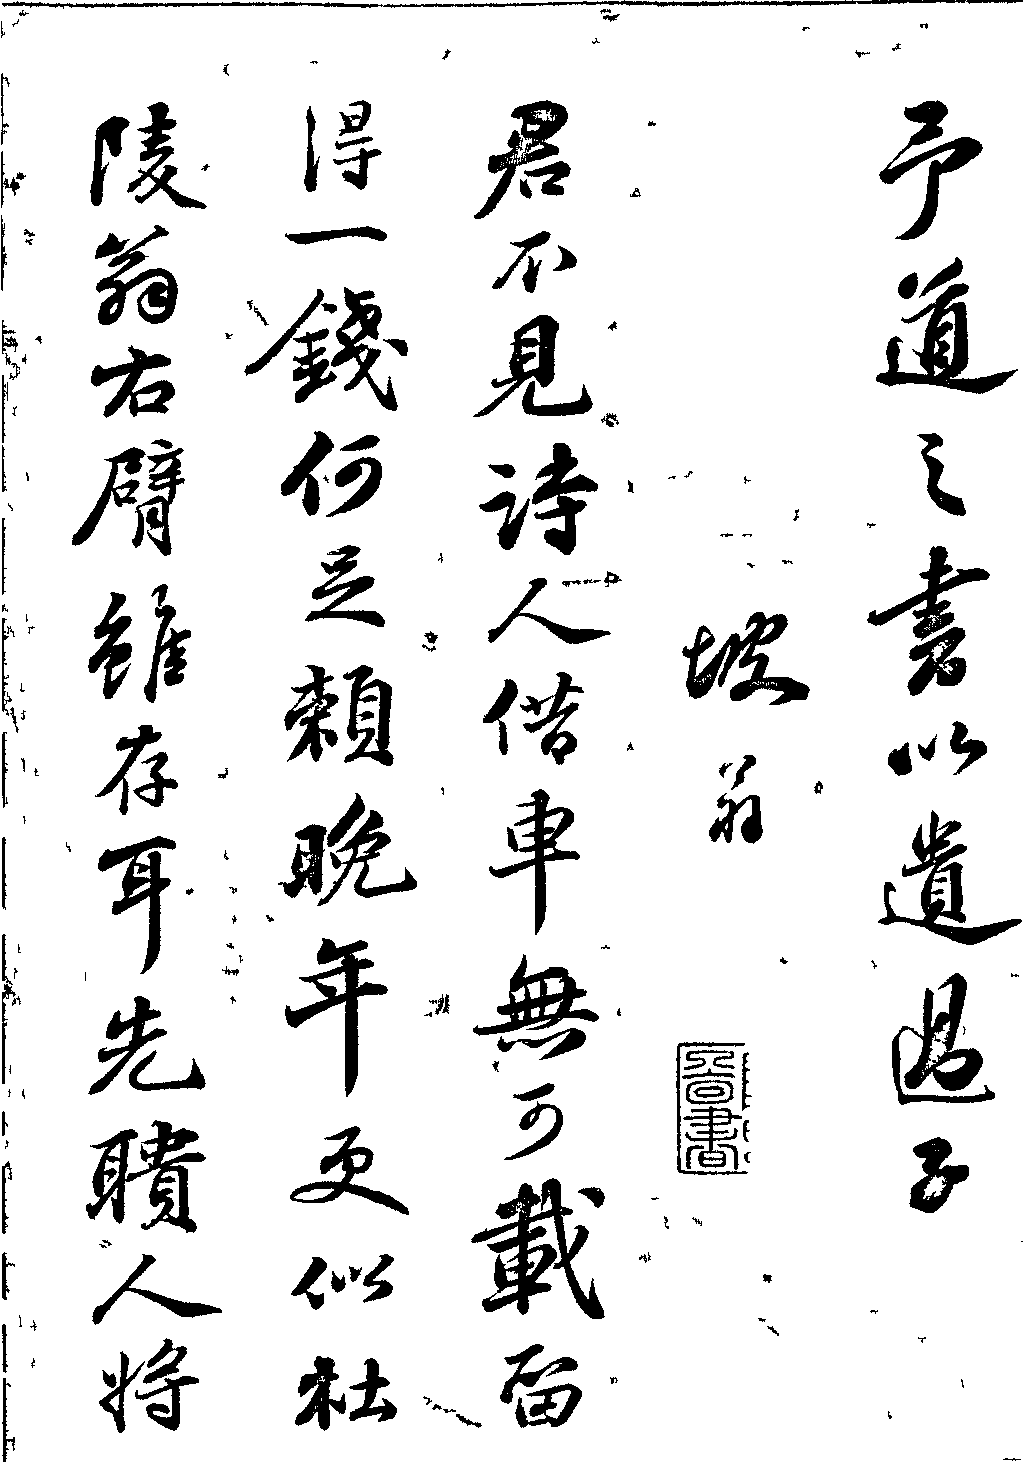 予道之書以遺過子
坡翁
君不見詩人借車無可載留
得一錢何足賴晚年更似杜
陵翁右臂雖存耳先聵人將